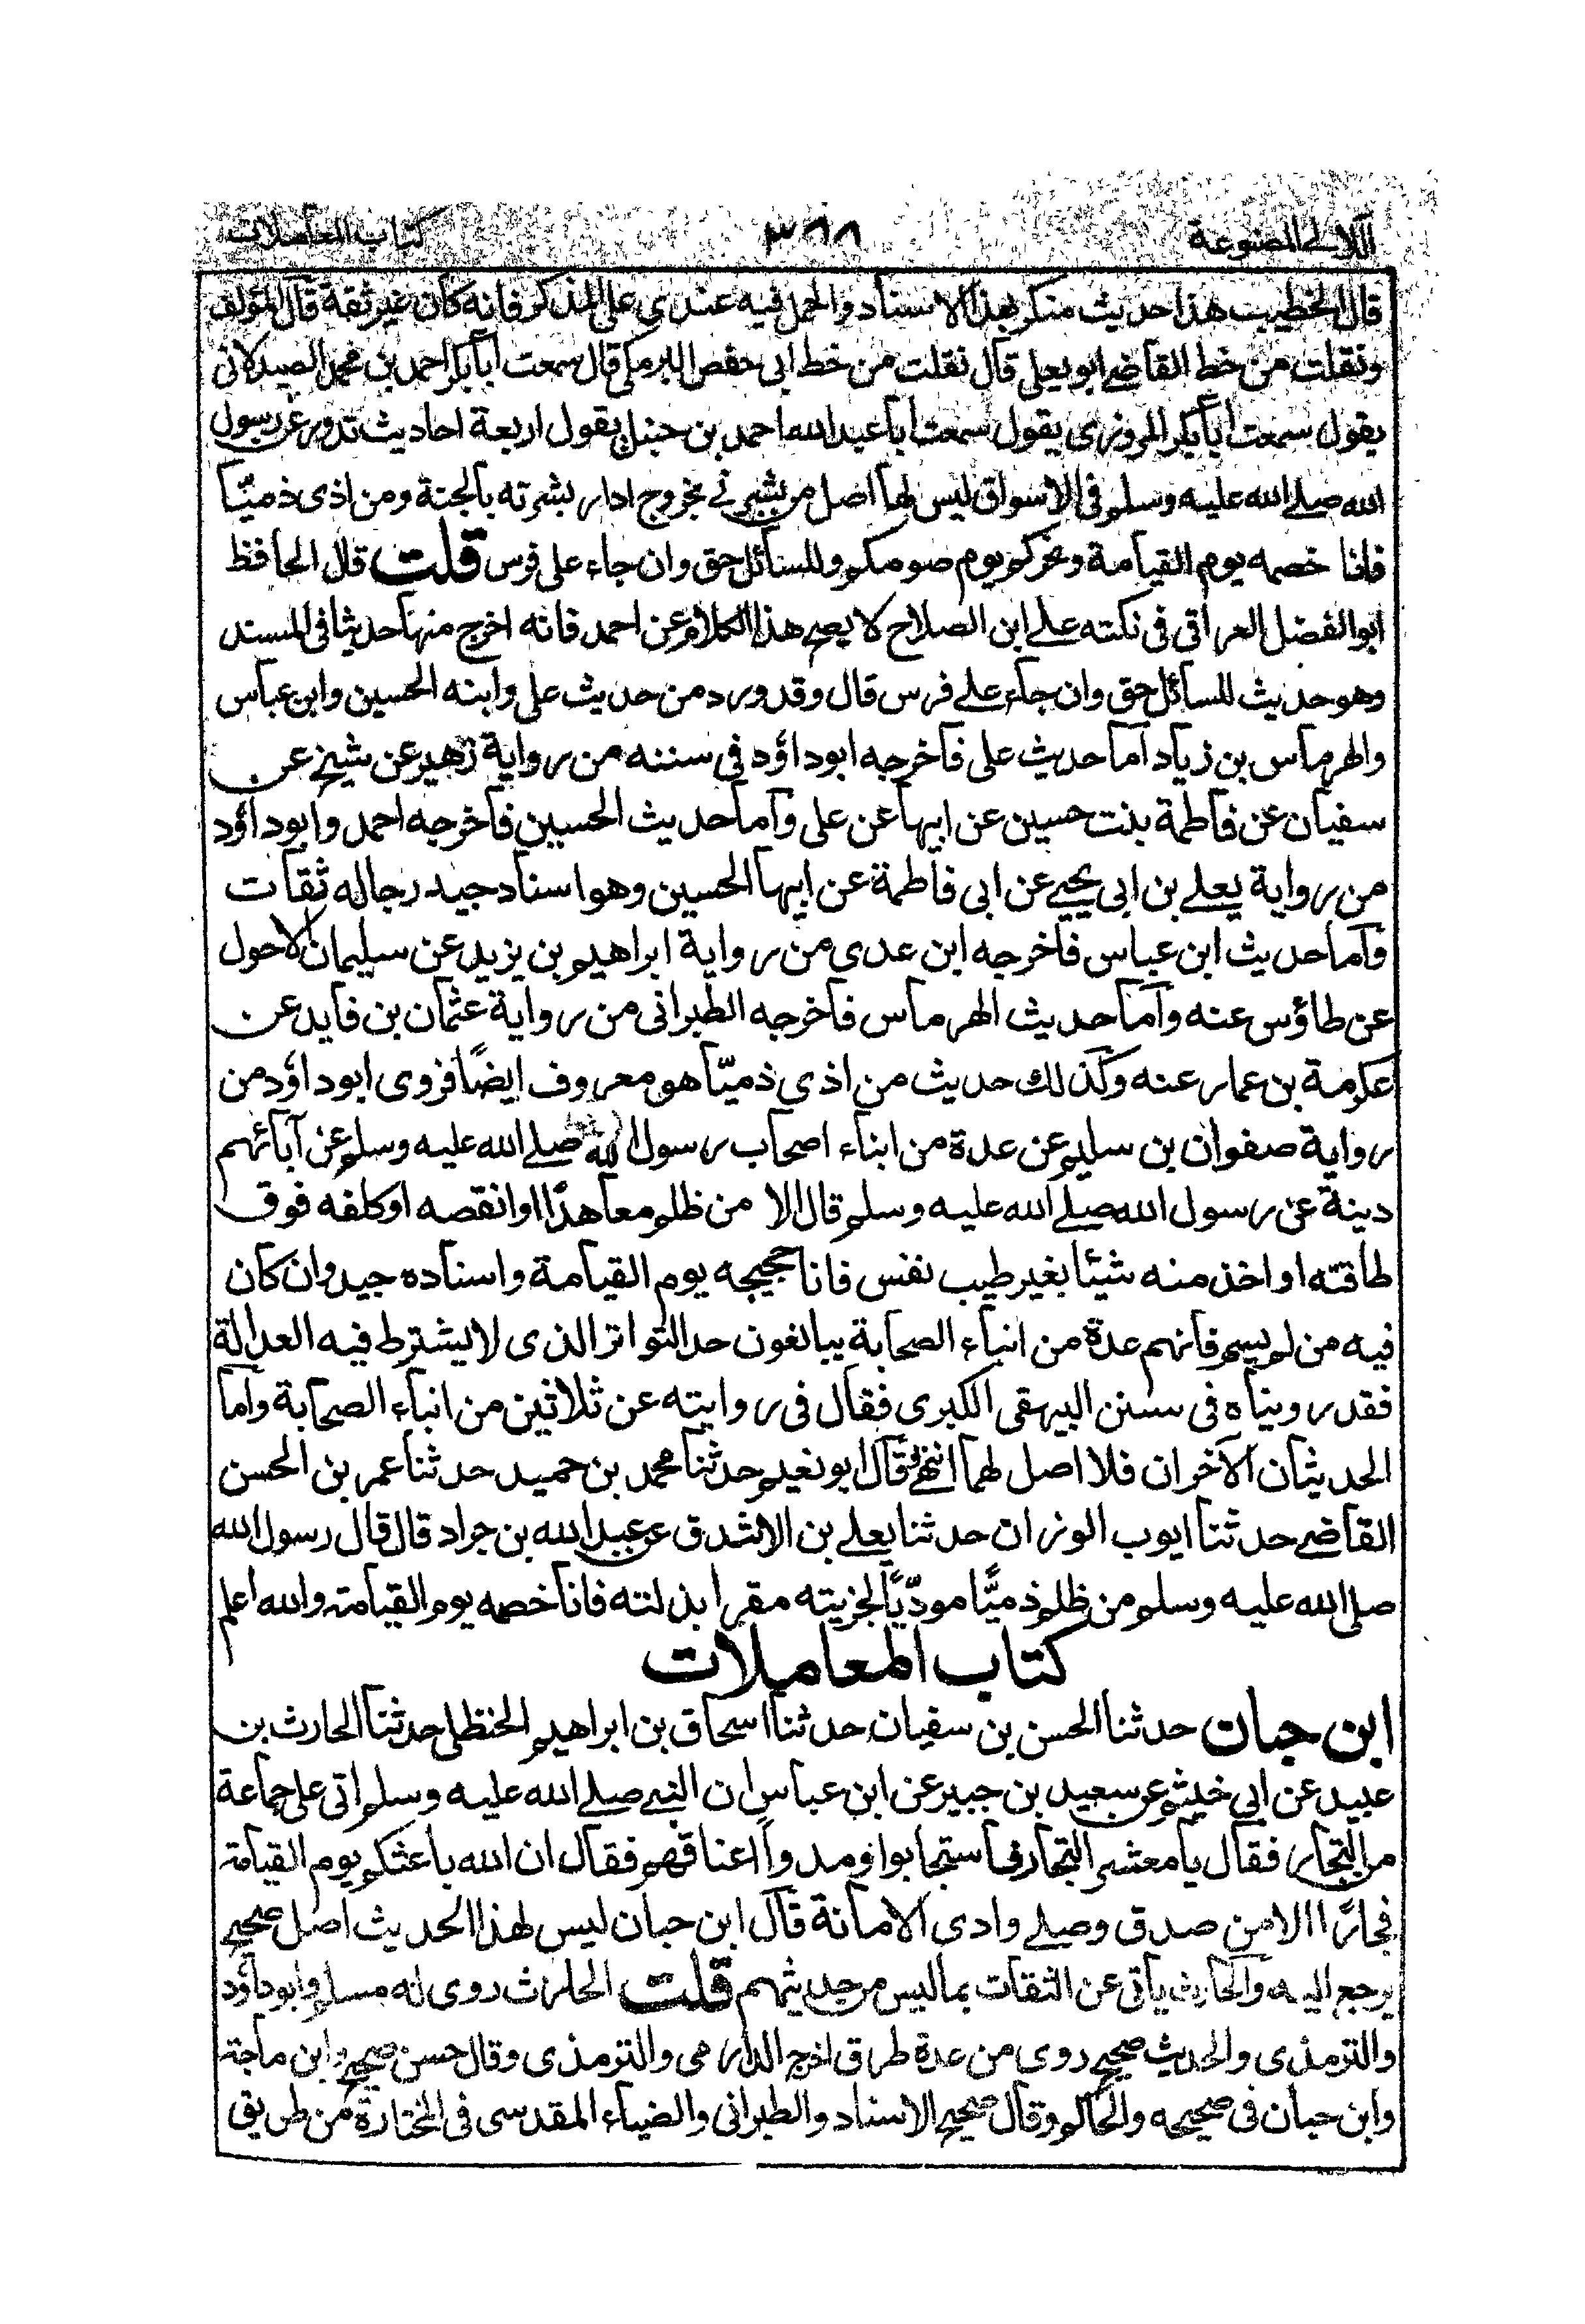 اللآلى المصنوعة ٣٨٨ كتاب المعاملات
قال الخطيب هذا حديث منكر بهذا الاسناد والحمل فيه عندي على المذكر فانه كان غير ثقة قال المؤلف
ونقلت من خط القاضي ابو يعلى قال نقلت من خط ابى حفص البرمكي قال سمعت ابا بكر احمد بن محمد الصيدلانى
يقول سمعت ابا بكر المروزى يقول سمعت ابا عبد الله احمد بن حنبل يقول اربعة احاديث تدور عن رسول
الله صلے الله عليه وسلم فى الاسواق ليس لها اصل من بشرنے بخروج اذار بشرته بالجنة ومن اذى ذميّا
فانا خصمه يوم القيامة ونحركم يوم صومكم وللسائل حق وان جاء على فرس قلت قال الحافظ
ابو الفضل العراقى فى نكته علے ابن الصلاح لا يصح هذا الكلام عن احمد فانه اخرج منها حديثا فى المسند
وهو حديث للسائل حق وان جاء علے فرس قال وقد ورد من حديث على وابنه الحسين وابن عباس
والهرماس بن زياد اما حديث على فاخرجه ابوداؤد فى سننه من رواية زهير عن شيخ عن
سفيان عن فاطمة بنت حسين عن ابيها عن على واما حديث الحسين فاخرجه احمد وابوداؤد
من رواية يعلے بن ابى يحيے عن ابى فاطمة عن ابيها الحسين وهو اسناد جيد رجاله ثقات
واما حديث ابن عباس فاخرجه ابن عدى من رواية ابراهيم بن يزيد عن سليمان الاحول
عن طاؤس عنه واما حديث الهرماس فاخرجه الطبرانى من رواية عثمان بن فايد عن
عكرمة بن عمار عنه وكذلك حديث من اذي ذميّا هو معروف ايضًا فروى ابوداؤد من
رواية صفوان بن سليم عن عدة من ابناء اصحاب رسول الله صلے الله عليه وسلم عن آبائهم
دينة عن رسول الله صلے الله عليه وسلم قال الا من ظلم معاهدًا او انقصه او كلفه فوق
طاقته او اخذ منه شيئا بغير طيب نفس فانا حجيجه يوم القيامة واسناده جيد وان كان
فيه من لم يسم فانهم عدة من انباء الصحابة يبالغون حد التواتر الذى لا يشترط فيه العدالة
فقد رويناه فى سنن البيهقى الكبرى فقال فى روايته عن ثلاثين من انباء الصحابة واما
الحديثان الآخران فلا اصل لهما انتهى وقال ابو نعيم حدثنا محمد بن حميد حدثنا عمر بن الحسن
القاضے حدثنا ايوب الوزان حدثنا يعلے بن الاشدق عن عبد الله بن جراد قال قال رسول الله
صلى الله عليه وسلم من ظلم ذميًّا مودّيًا لجزيته مقرا بذلته فانا خصمه يوم القيامة والله اعلم
كتاب المعاملات
ابن حبان حدثنا الحسن بن سفيان حدثنا اسحاق بن ابراهيم الحنظلى حدثنا الحارث بن
عبيد عن ابي خيثم عن سعيد بن جبير عن ابن عباس ان النبے صلے الله عليه وسلم اتى على جماعة
من التجار فقال يا معشر التجار فاستجابوا ومدوا اعناقهم فقال ان الله باعثكم يوم القيامة
فجارًا الا من صدق وصلے وادى الامانة قال ابن حبان ليس لهذا الحديث اصل صحيح
يرجع اليه والحارث ياتى عن الثقات بما ليس من حديثهم قلت الحارث روى له مسلم وابوداؤد
والترمذى والحديث صحيح روى من عدة طرق اخرجه الدارمى والترمذى وقال حسن صحيح وابن ماجة
وابن حبان فى صحيحه والحاكم وقال صحيح الاسناد والطبرانى والضياء المقدسى فى المختارة من طريق